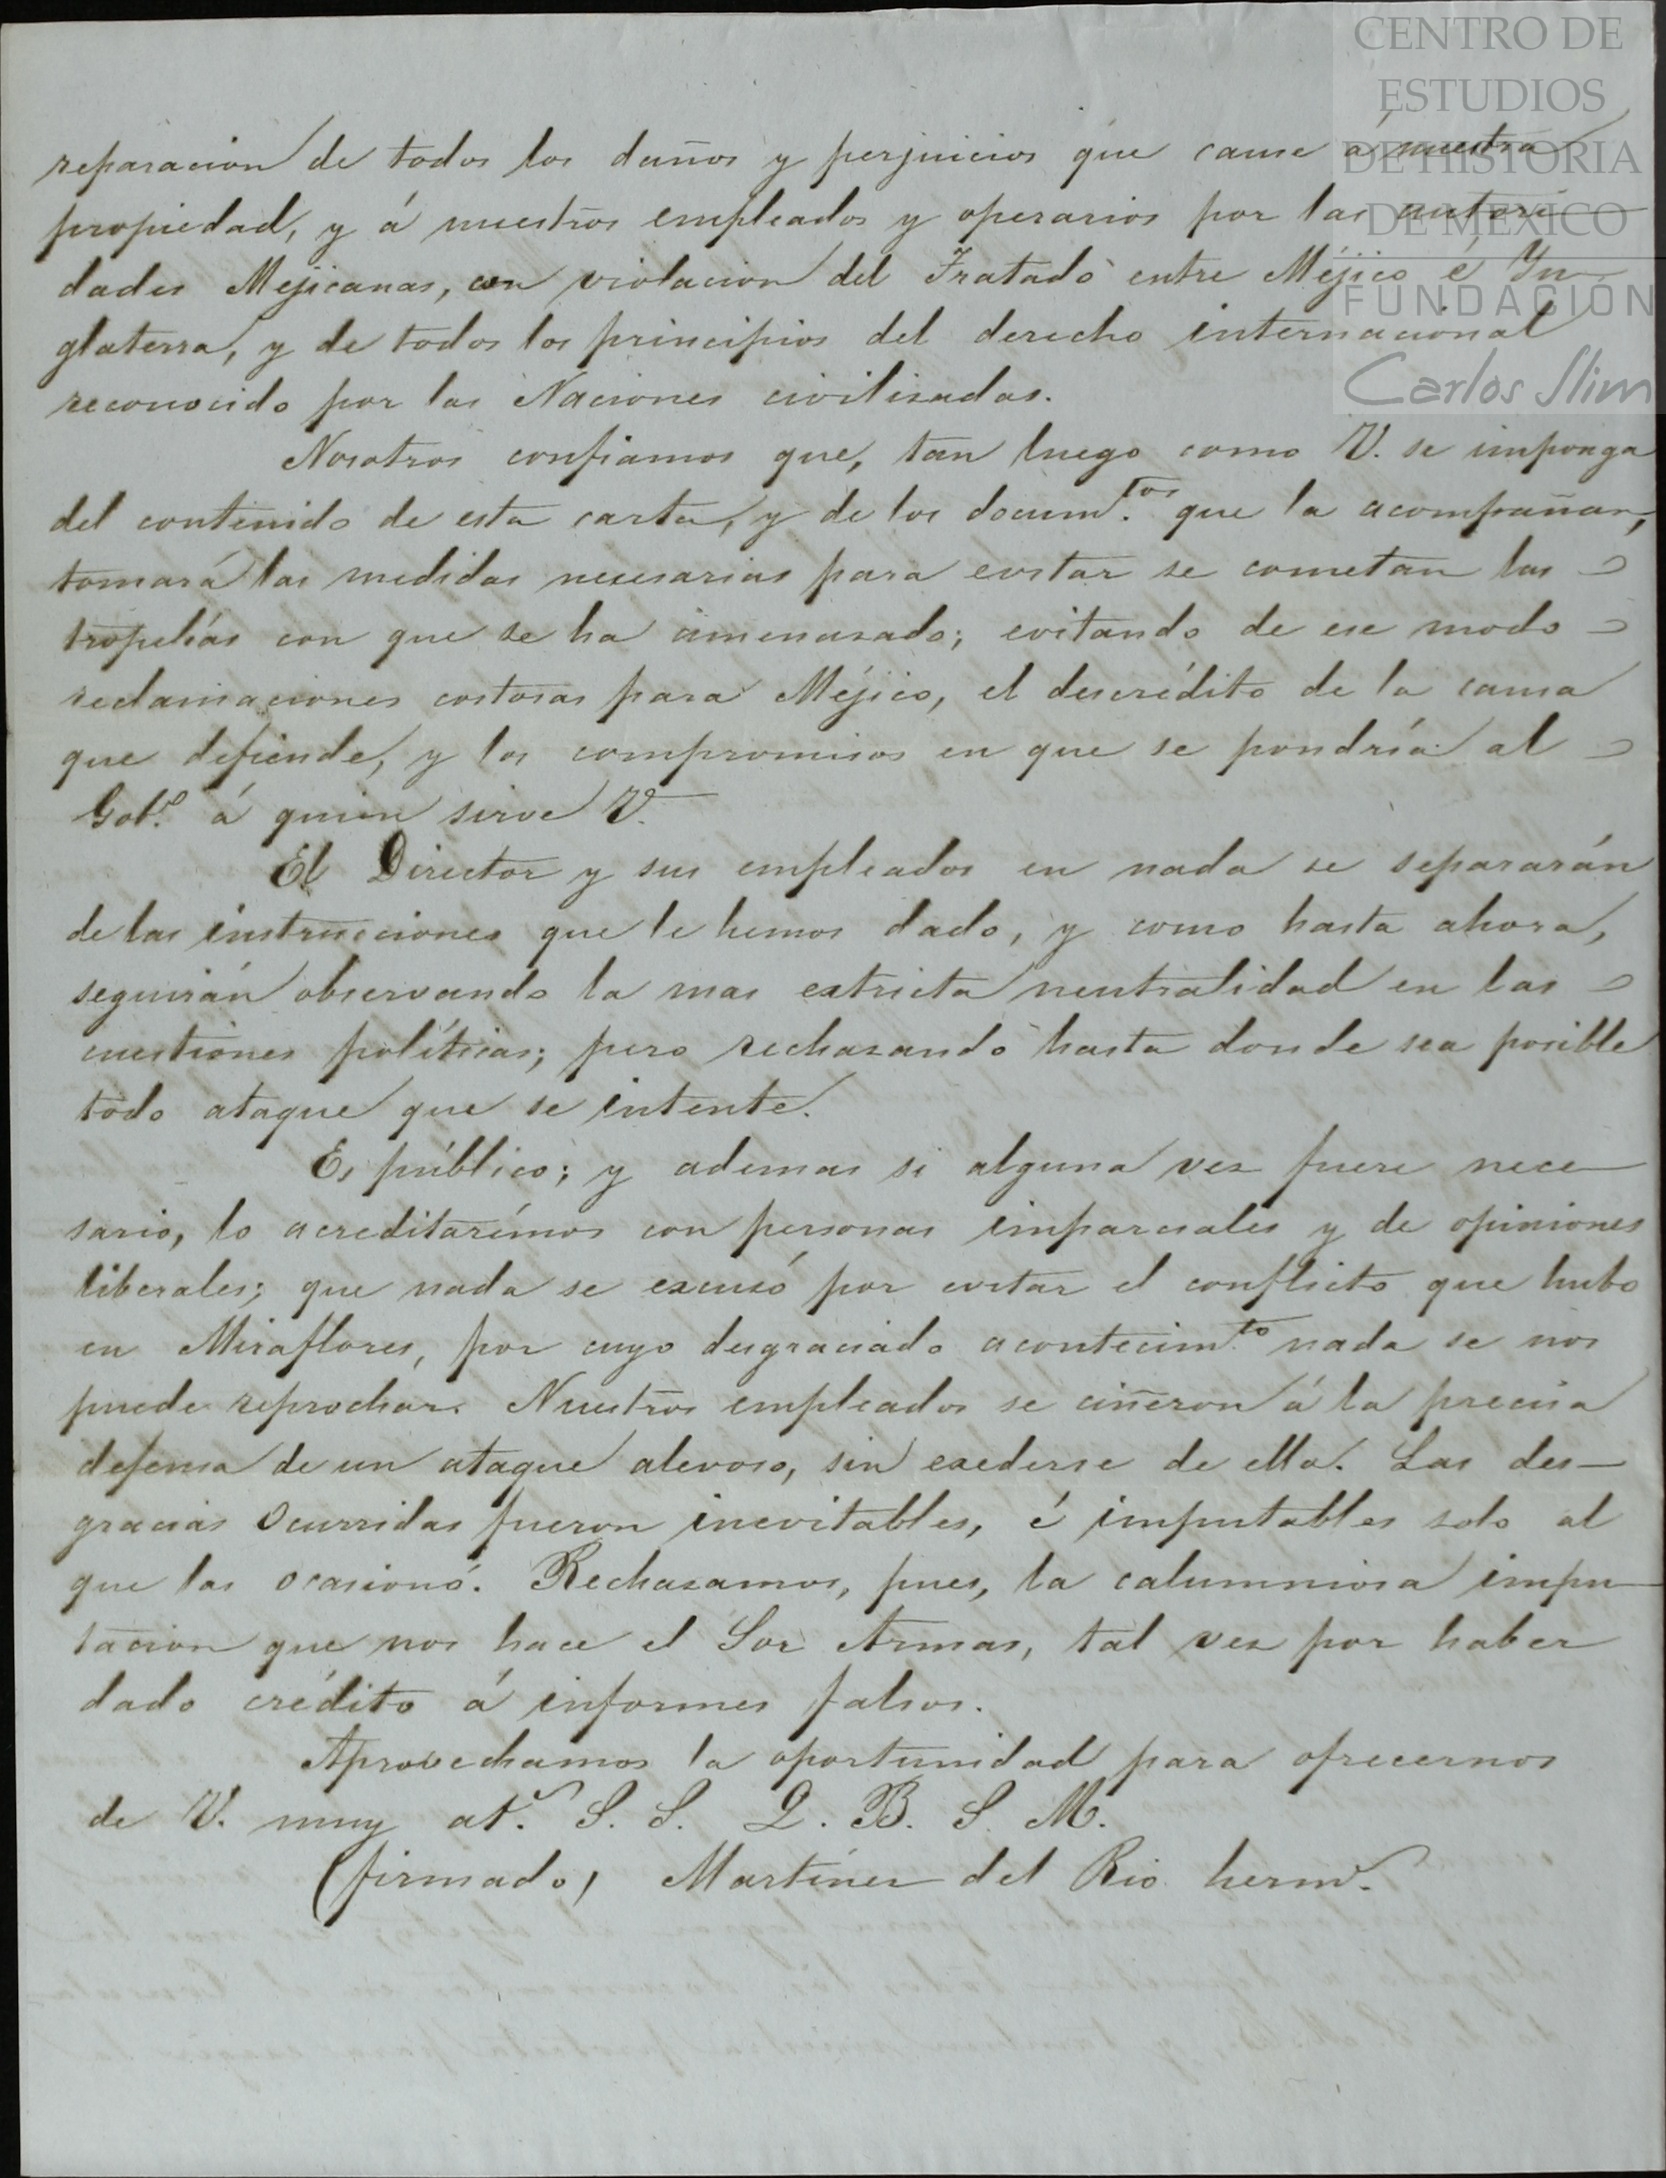 CENTRO DE
ESTUDIOS
DE HISTORIA
DE MEXICO
FUNDACIÓN
Carlos Slim
reparacion de todos los daños y perjuicios que cause á nuestra
propiedad, y á nuestros empleados y operarios por las autori
dades Mejicanas, con violacion del Tratado entre Méjico é In
glaterra, y de todos los principios del derecho internacional
reconocido por las Naciones civilizadas.
Nosotros confiamos que, tan luego como V. se imponga
del contenido de esta carta, y de los docum.tos que la acompañan,
tomará las medidas necesarias para evitar se cometan las
tropelías con que se ha amenazado; evitando de ese modo
reclamaciones costosas para Méjico, el descrédito de la causa
que defiende, y los compromisos en que se pondría al
Gob.º á quien sirve V.
El Director y sus empleados en nada se separarán
de las instrucciones que le hemos dado, y como hasta ahora,
seguirán observando la mas extricta neutralidad en las
cuestiones políticas; pero rechazando hasta donde sea posible
todo ataque que se intente.
Es público; y ademas si alguna vez fuere nece
sario, lo acreditarémos con personas imparciales y de opiniones
liberales; que nada se escusó por evitar el conflicto que hubo
en Miraflores, por cuyo desgraciado acontecim.to nada se nos
puede reprochar. Nuestros empleados se ciñeron á la precisa
defensa de un ataque alevoso, sin exederse de ella. Las des-
gracias ocurridas fueron inevitables, é imputables solo al
que las ocasionó. Rechazamos, pues, la calumniosa impu-
tacion que nos hace el Sor Armas, tal vez por haber
dado crédito á informes falsos.
Aprovechamos la oportunidad para ofrecernos
de V. muy at.s S. S. Q. B. S. M.
(firmado) Martinez del Rio herm.s